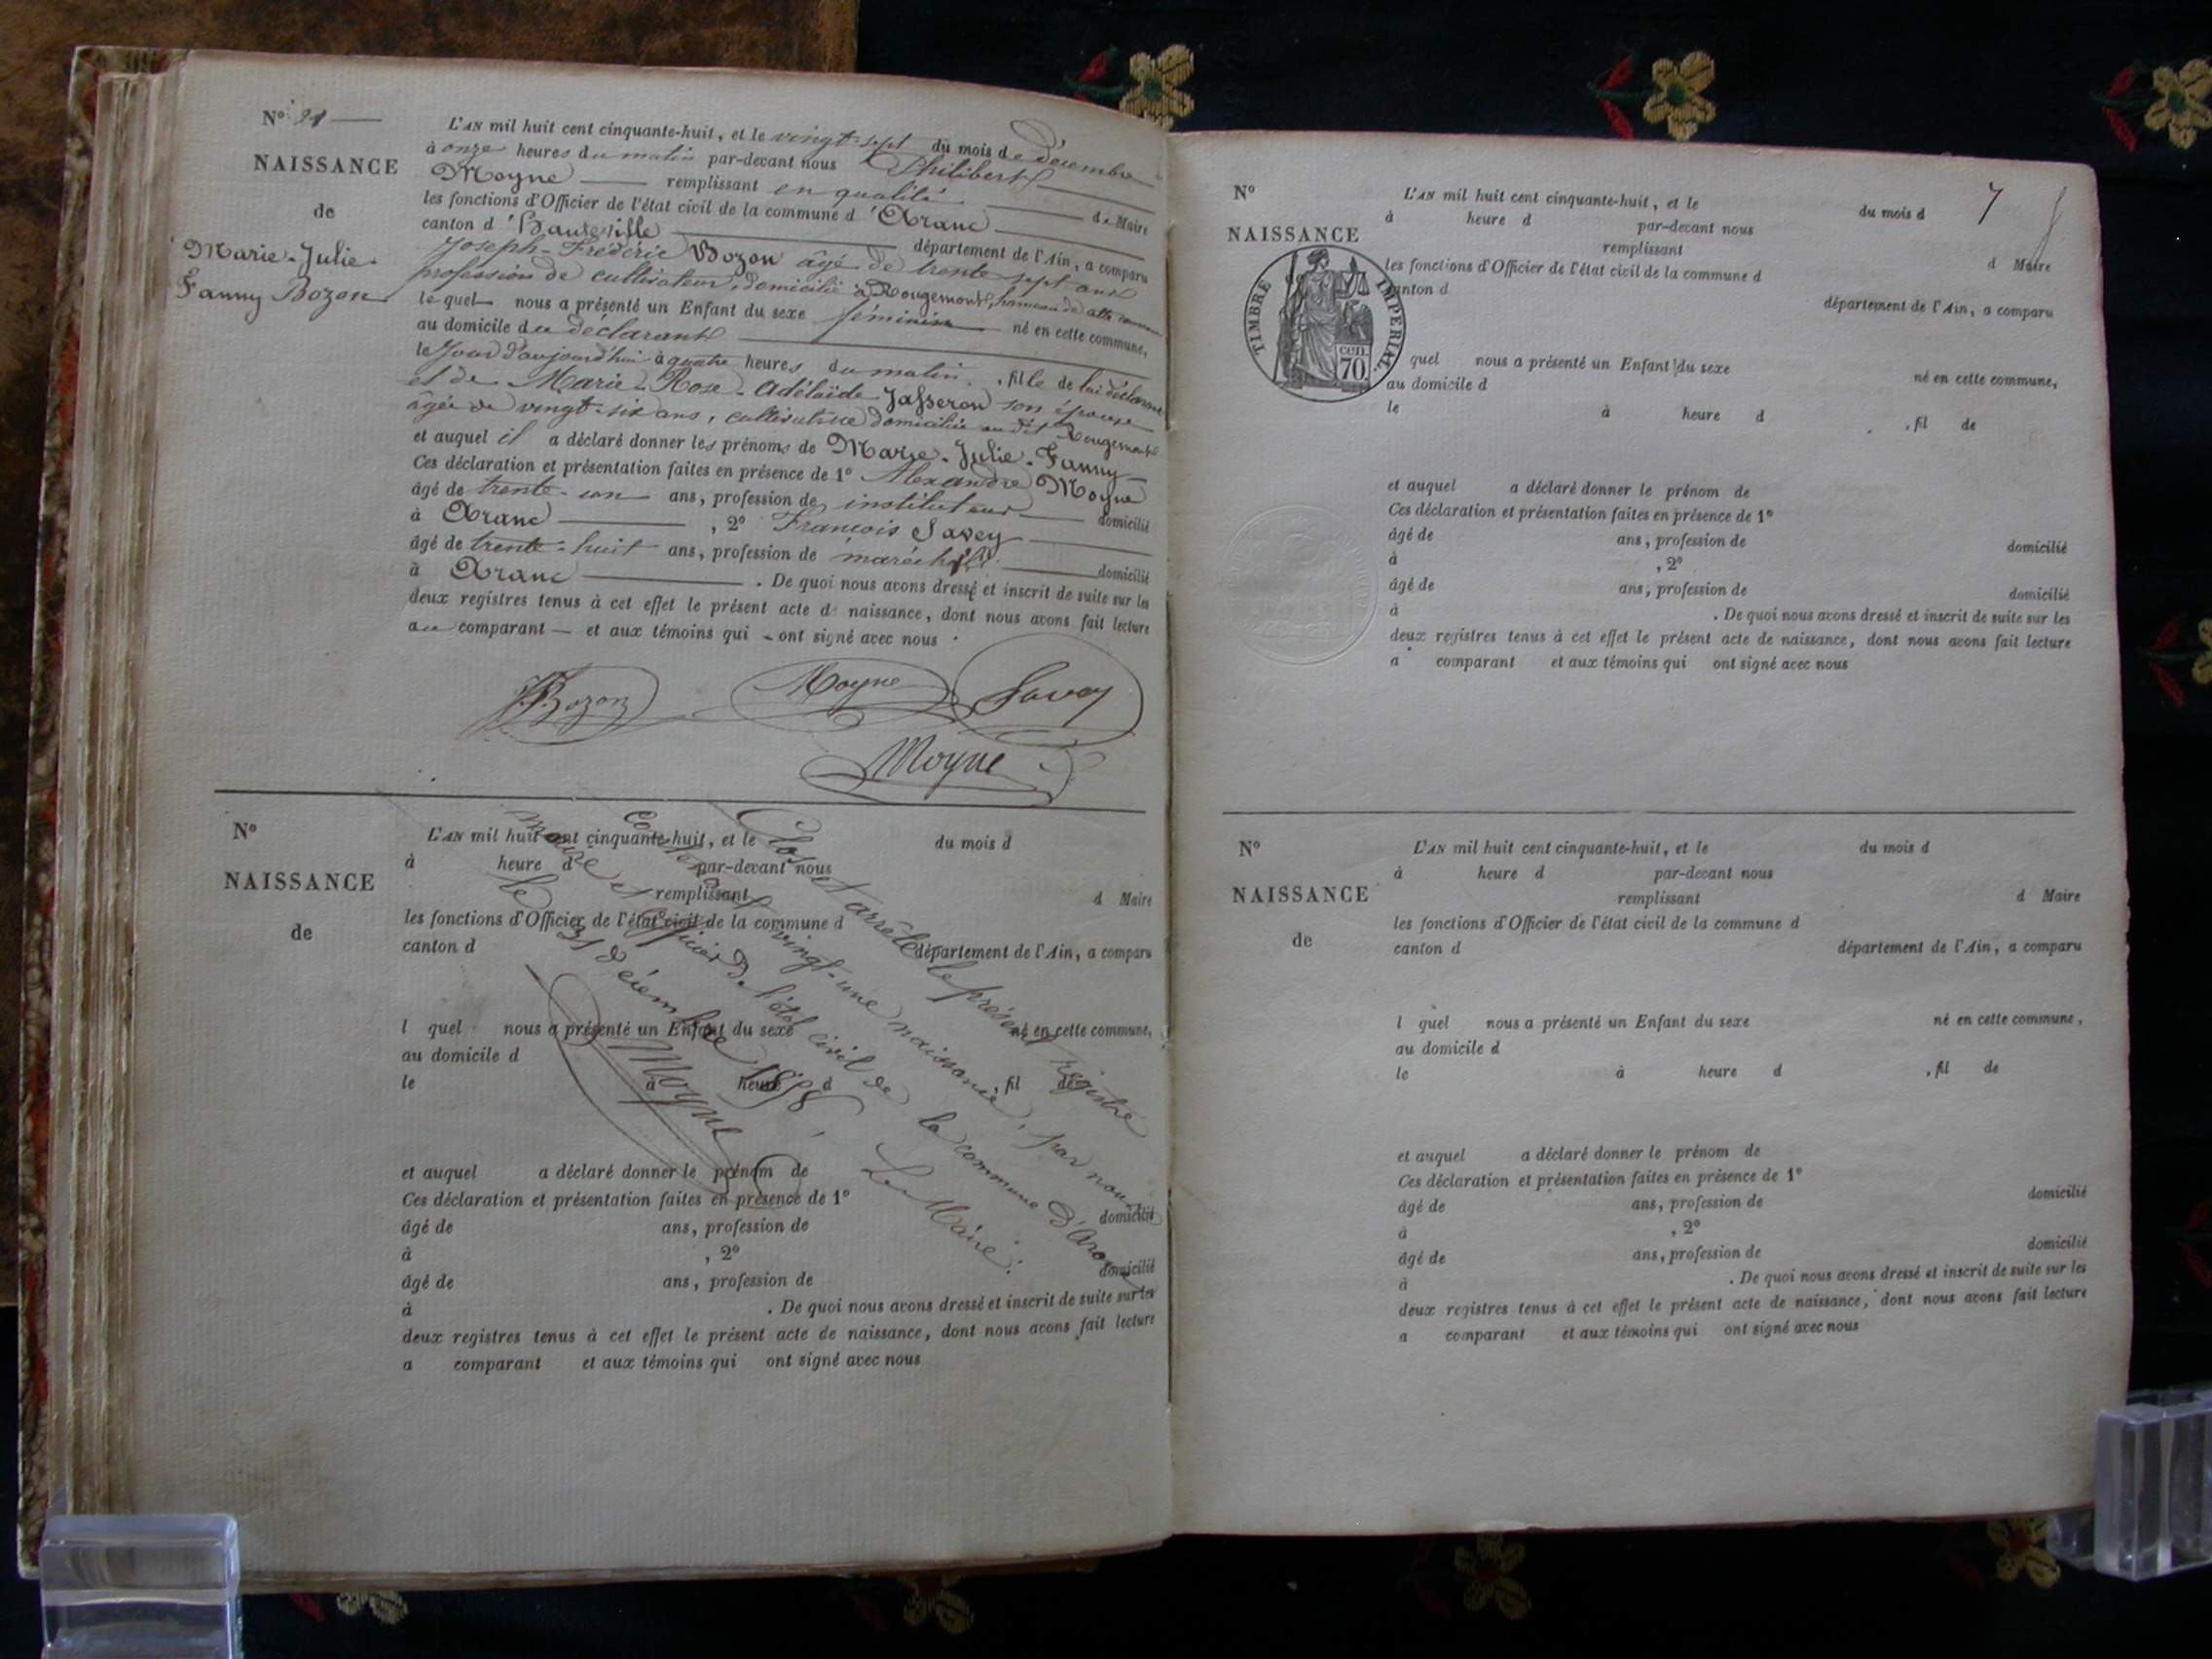 N° 21
NAISSANCE
de
Marie-Julie-
Fanny Bozon
L'AN mil huit cent cinquante-huit, et le vingt-sept du mois de décembre
à onze heures du matin par-devant nous Philibert
Moyne remplissant en qualité de Maire
les fonctions d'Officier de l'état civil de la commune d'Aranc
canton d'Hauteville département de l'Ain, a comparu
Joseph-Frédéric Bozon âgé de trente-sept ans
profession de cultivateur, domicilié à Rougemont, hameau de cette commune
lequel nous a présenté un Enfant du sexe féminin né en cette commune,
au domicile du déclarant
le jour d'aujourd'hui à quatre heures du matin, fille de lui déclarant
et de Marie-Rose-Adélaïde Jasseron son épouse
âgée de vingt-six ans, cultivatrice domiciliée au dit Rougemont
et auquel il a déclaré donner les prénoms de Marie-Julie-Fanny
Ces déclaration et présentation faites en présence de 1° Alexandre Moyne
âgé de trente-un ans, profession de instituteur domicilié
à Aranc , 2° François Savey
âgé de trente-huit ans, profession de maréchal domicilié
à Aranc . De quoi nous avons dressé et inscrit de suite sur les
deux registres tenus à cet effet le présent acte de naissance, dont nous avons fait lecture
au comparant et aux témoins qui ont signé avec nous
Bozon Moyne Savey
Moyne
N°
NAISSANCE
de
L'AN mil huit cent cinquante-huit, et le du mois d
à heure d par-devant nous
remplissant d Maire
les fonctions d'Officier de l'état civil de la commune d
canton d département de l'Ain, a comparu
l quel nous a présenté un Enfant du sexe né en cette commune,
au domicile d
le à heure d , fil de
et auquel a déclaré donner le prénom de
Ces déclaration et présentation faites en présence de 1°
âgé de ans, profession de domicilié
à , 2°
âgé de ans, profession de domicilié
à . De quoi nous avons dressé et inscrit de suite sur les
deux registres tenus à cet effet le présent acte de naissance, dont nous avons fait lecture
a comparant et aux témoins qui ont signé avec nous
Clos et arrêté le présent registre
contenant vingt-une naissance, par nous
Maire et officier de l'état civil de la commune d'Aranc
le 31 décembre 1858, Le Maire:
Moyne
7
N°
NAISSANCE
de
TIMBRE IMPERIAL
cen.
70.
L'AN mil huit cent cinquante-huit, et le du mois d
à heure d par-devant nous
remplissant d Maire
les fonctions d'Officier de l'état civil de la commune d
canton d département de l'Ain, a comparu
quel nous a présenté un Enfant du sexe né en cette commune,
au domicile d
le à heure d , fil de
et auquel a déclaré donner le prénom de
Ces déclaration et présentation faites en présence de 1°
âgé de ans, profession de domicilié
à , 2°
âgé de ans, profession de domicilié
à . De quoi nous avons dressé et inscrit de suite sur les
deux registres tenus à cet effet le présent acte de naissance, dont nous avons fait lecture
a comparant et aux témoins qui ont signé avec nous
N°
NAISSANCE
de
L'AN mil huit cent cinquante-huit, et le du mois d
à heure d par-devant nous
remplissant d Maire
les fonctions d'Officier de l'état civil de la commune d
canton d département de l'Ain, a comparu
l quel nous a présenté un Enfant du sexe né en cette commune,
au domicile d
le à heure d , fil de
et auquel a déclaré donner le prénom de
Ces déclaration et présentation faites en présence de 1°
âgé de ans, profession de domicilié
à , 2°
âgé de ans, profession de domicilié
à . De quoi nous avons dressé et inscrit de suite sur les
deux registres tenus à cet effet le présent acte de naissance, dont nous avons fait lecture
a comparant et aux témoins qui ont signé avec nous